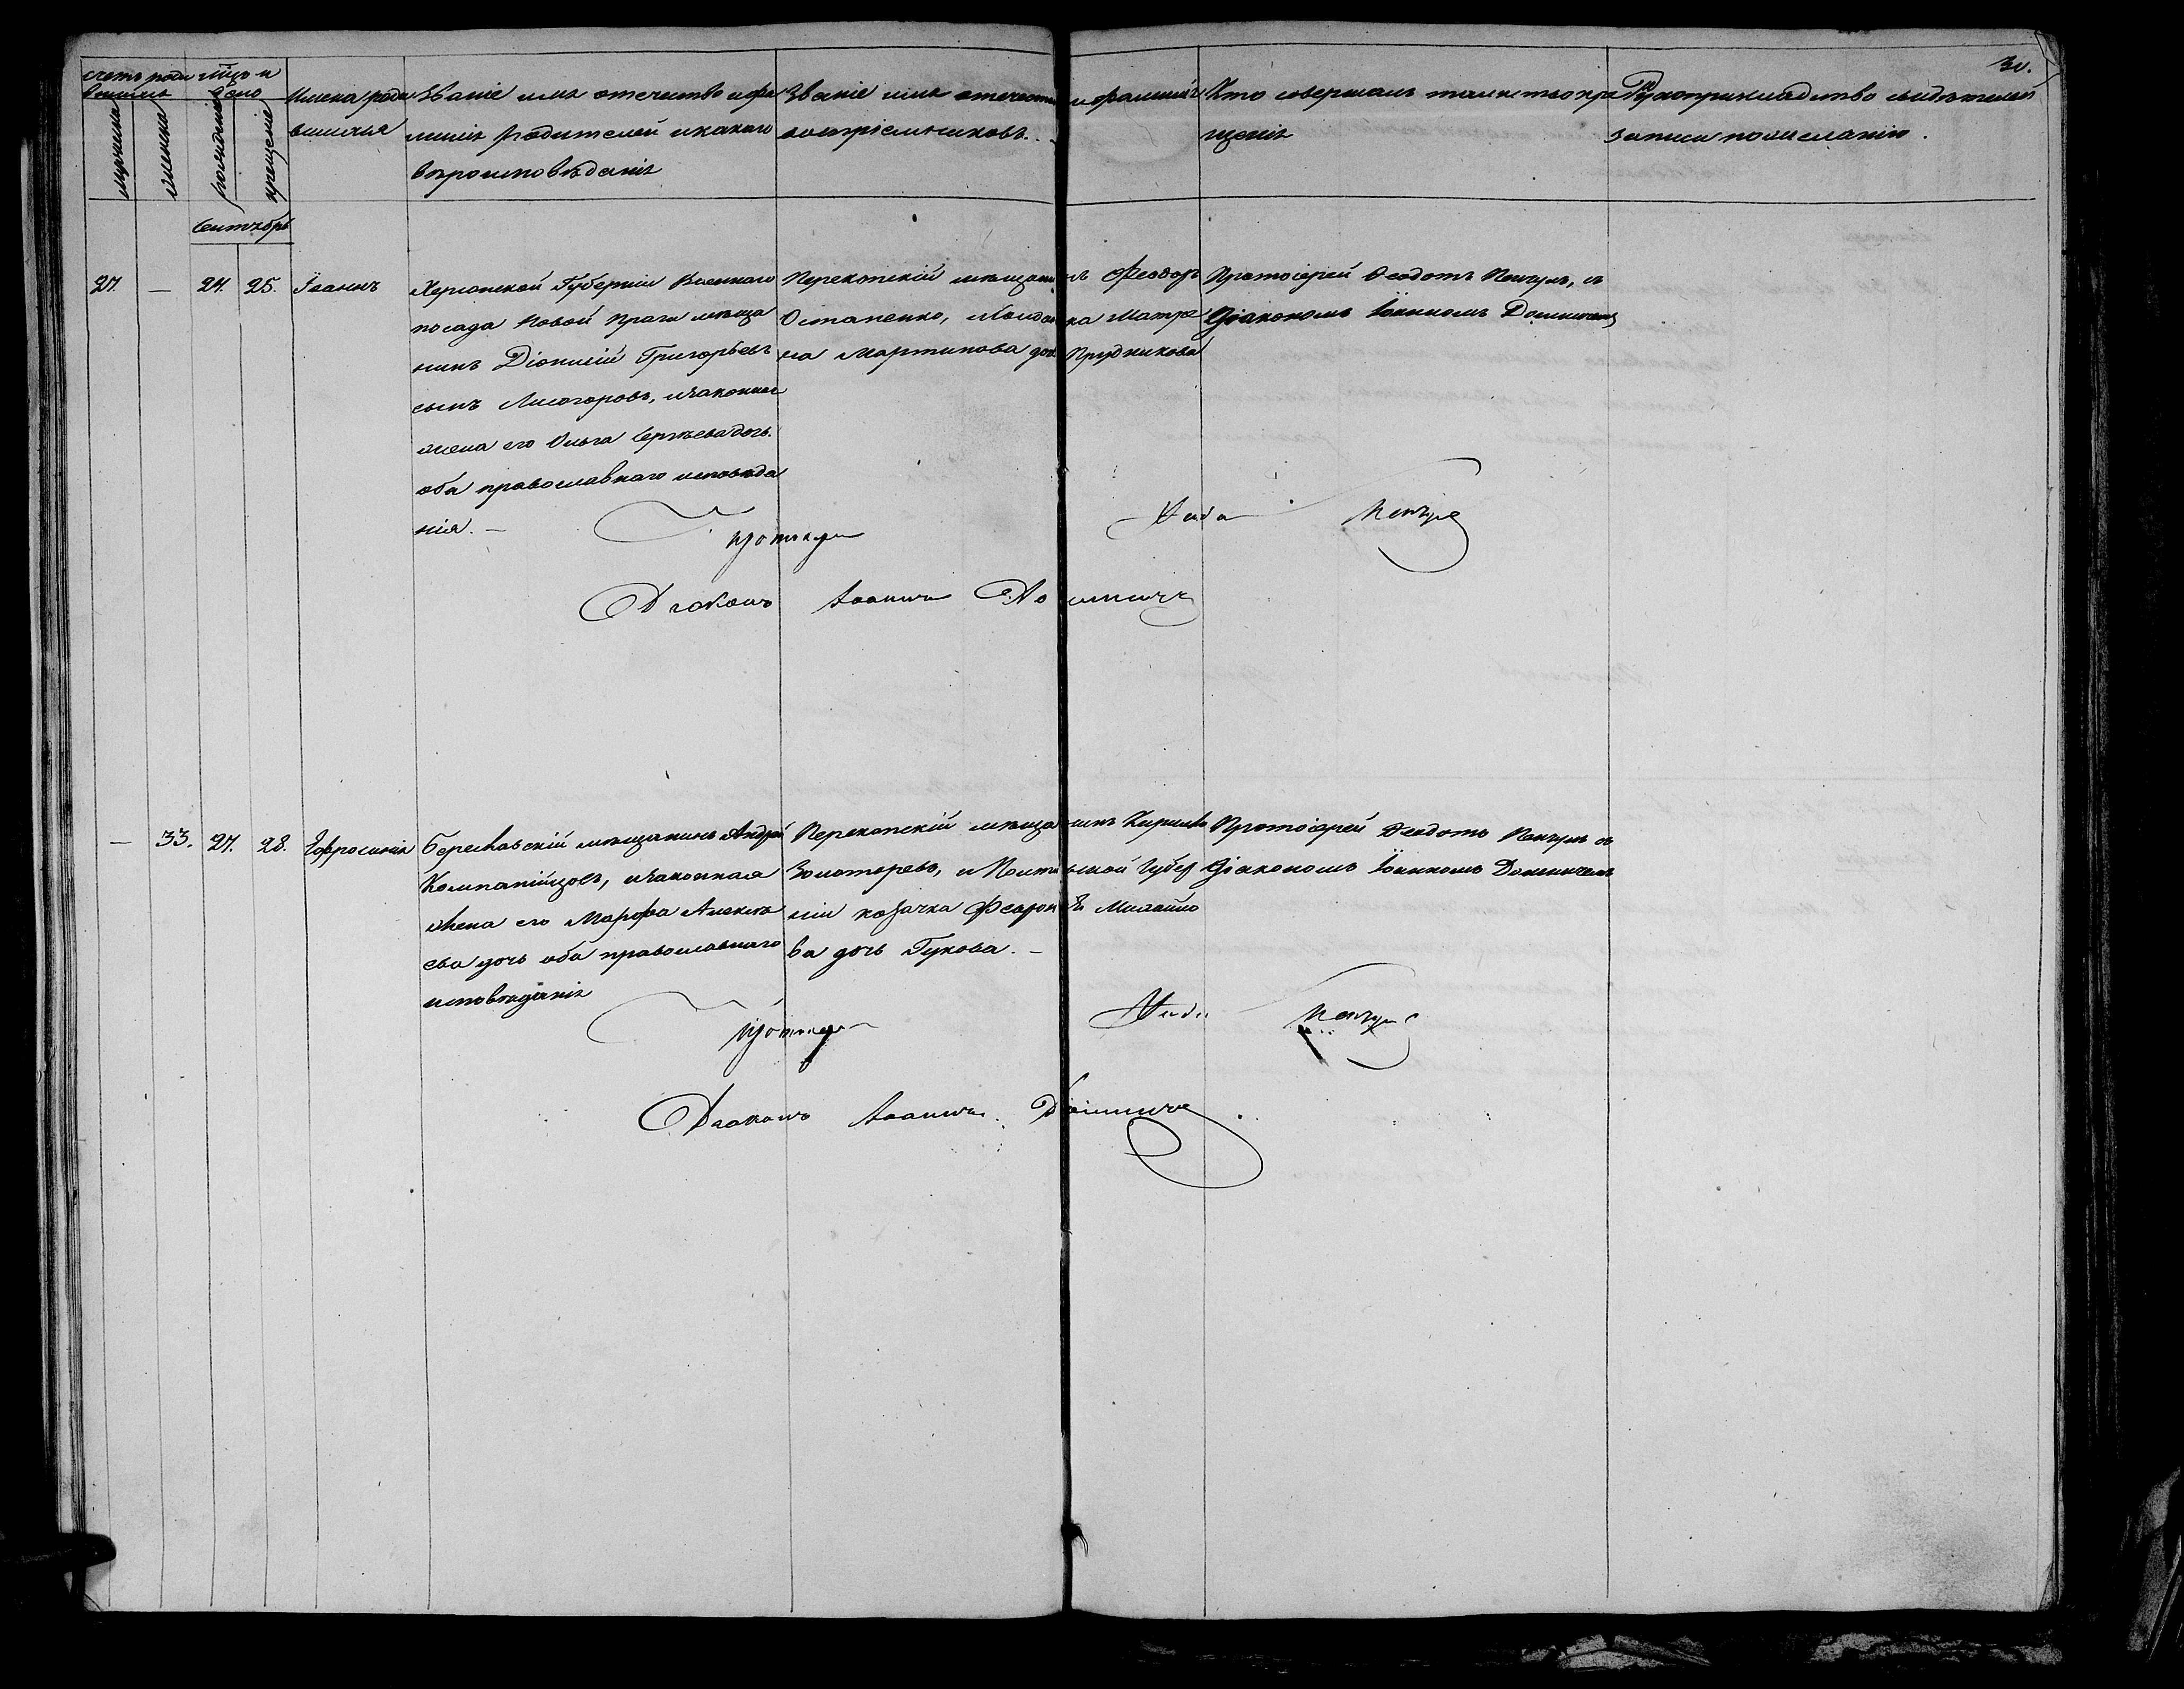 30.
Счетъ роди
вшихся
мѣсяцъ и
день
мужеска
женска
рожденіе
крещеніе
Имена роди
вшихся
Званіе имя отечество и фа
милія родителей и какого
вѣроисповѣданія
Званіе имя отечество и фамилія
воспріемниковъ.
Кто совершалъ таинство кре
щенія
Рукоприкладство свидѣтелей
записи по желанію.
Сентябрь
27. — 24. 25. Іоаннъ
Херсонской Губерніи Военнаго
посада Новой Праги мѣща
нинъ Діонисій Григорьевъ
сынъ Лисогоровъ, и законная
жена его Ольга Сергѣева дочь.
оба православнаго исповѣда
нія. —
Перекопскій мѣщанинъ Феодоръ
Остапенко, Матре
на Мартинова дочь Прудникова
Протоіерей Феодотъ Кенчулъ, съ
діакономъ Іоанномъ
Протоіерей
Діаконъ Іоаннъ
— 33. 27. 28. Ефросинія
Береславскій мѣщанинъ Андрей
Компанійцовъ, и законная
жена его Марфа Алексѣ
ева дочь оба православнаго
исповѣданія
Перекопскій мѣщанинъ Кирилъ
Золоторевъ, и Полтавской Губер
ніи козачка Феврон Михайло
ва дочь Гукова. —
Протоіерей Феодотъ Кенчулъ съ
діакономъ Іоанномъ
Протоіерей
Діаконъ Іоаннъ